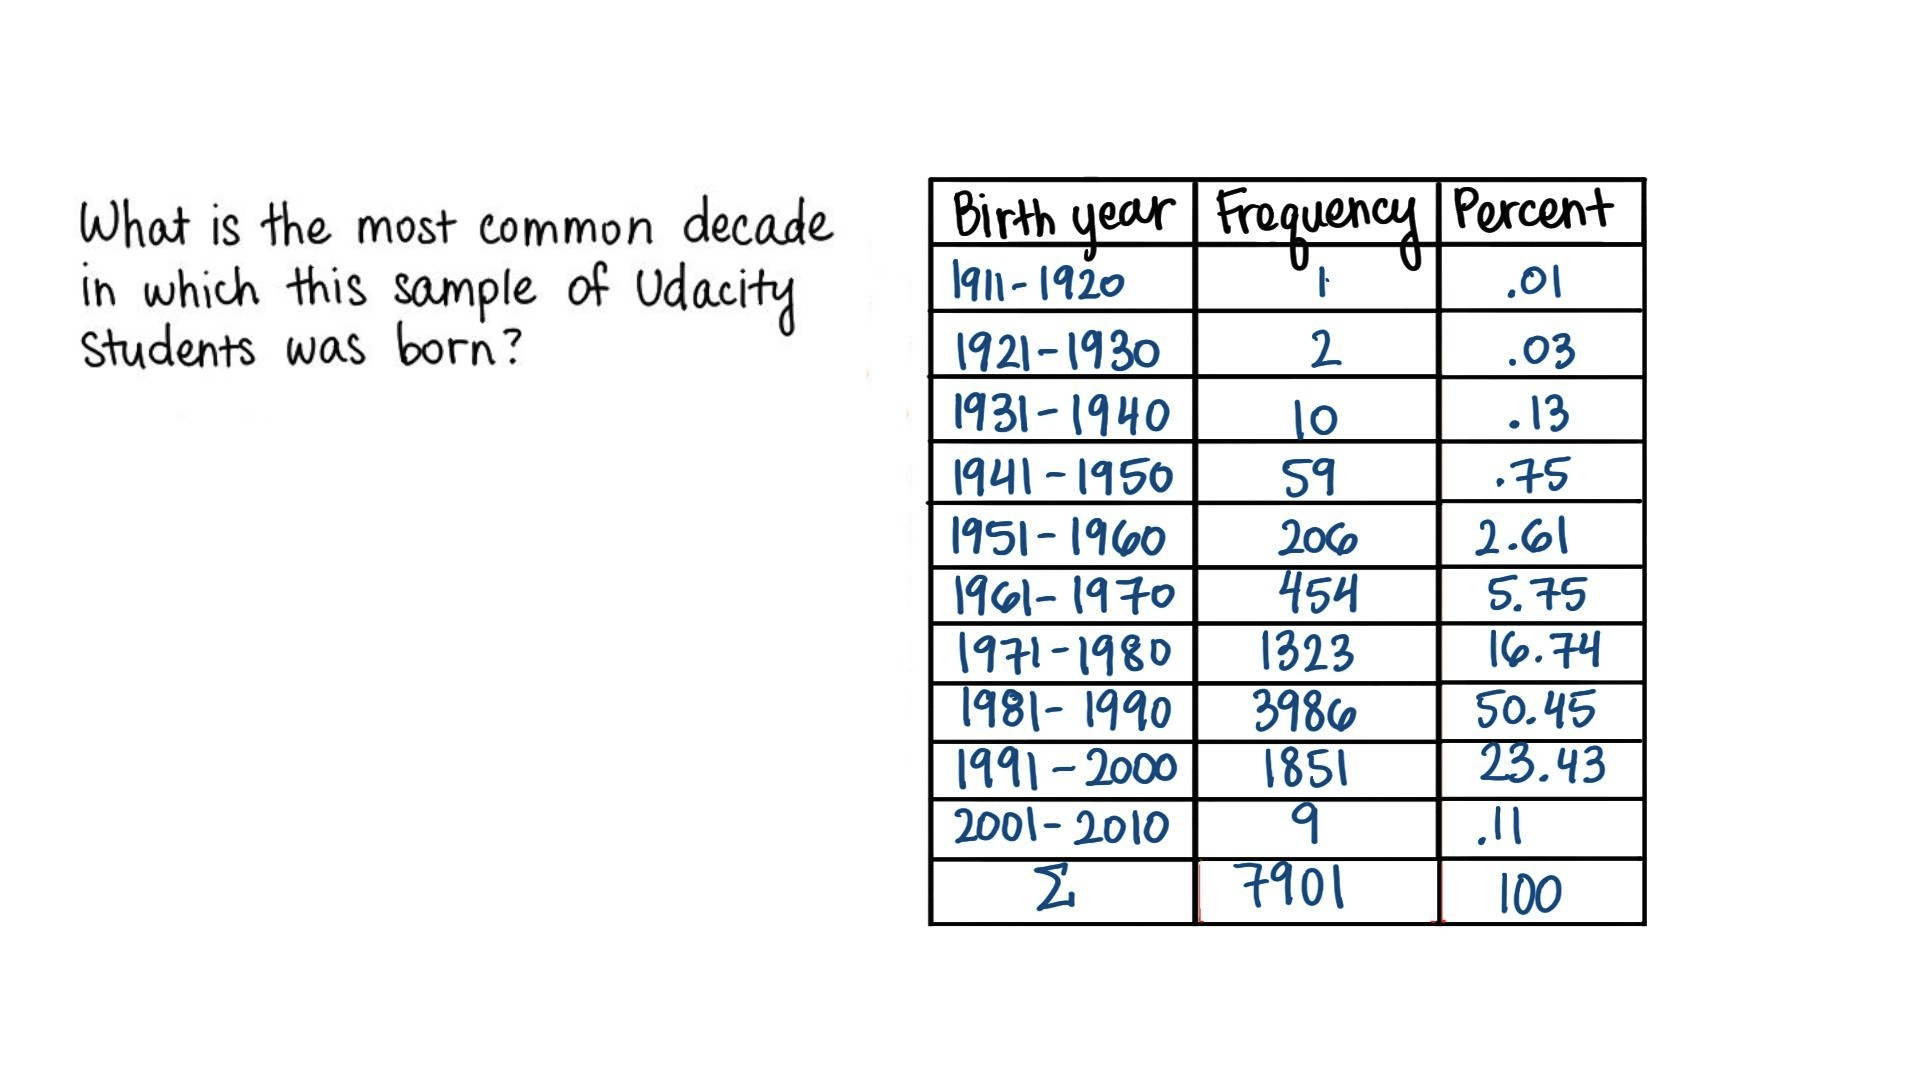 What is the most common decade
in which this sample of Udacity
students was born?
Birth year Frequency Percent
1911-1920 1 .01
1921-1930 2 .03
1931-1940 10 .13
1941-1950 59 .75
1951-1960 206 2.61
1961-1970 454 5.75
1971-1980 1323 16.74
1981-1990 3986 50.45
1991-2000 1851 23.43
2001-2010 9 .11
Σ 7901 100